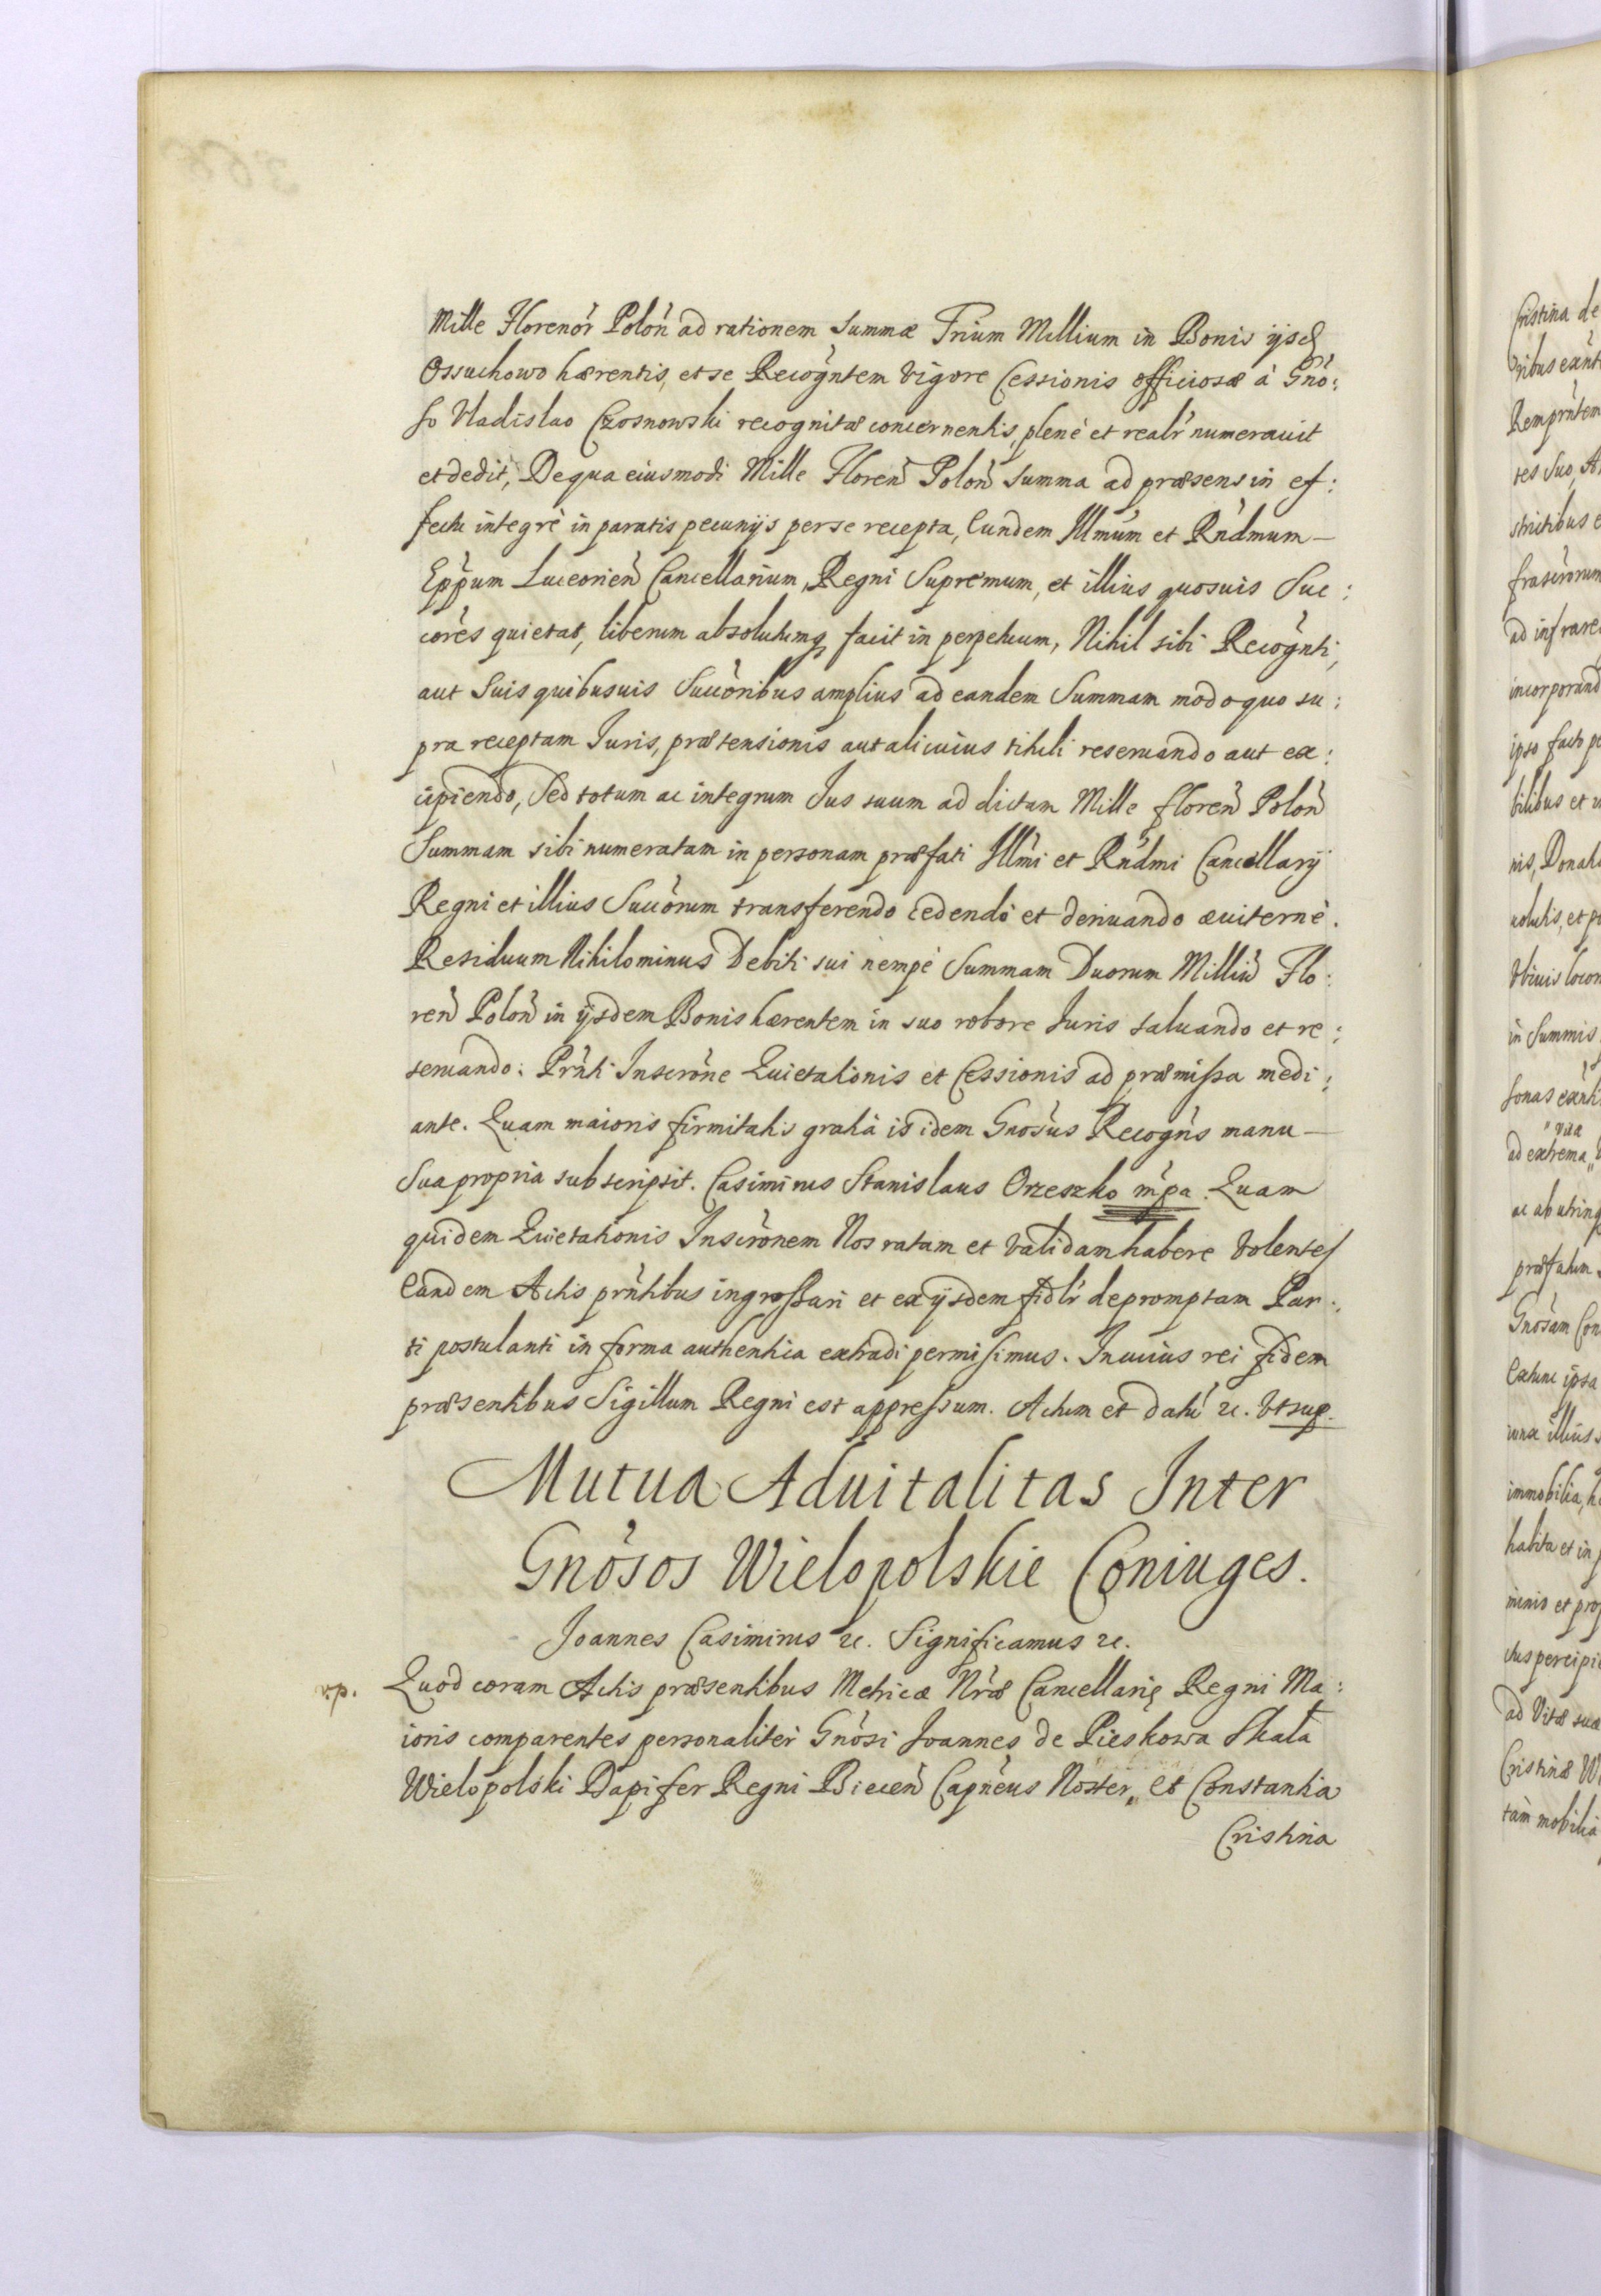 Mille Florenor̀ Poloǹ ad rationem Summæ Trium Millium in Bonis ijsd
Ossuchowo hærentis, et se Recogǹtem Vigore Cessionis officiosæ à Gnò:
so Vladislao Czosnowski recognitæ concernentis, plenè et realr̀ numerauit
et dedit, De qua eiusmodi Mille Floreǹ Poloǹ Summa ad præsens in ef:
fectu integrè in paratis pecunijs per se recepta, Eundem Illmùm et Rǹdmum —
Epp̀um Luceorieǹ Cancellarium, Regni Supremum, et illius quosuis Suc:
cor̀es quietat, liberum absolutumq facit in perpetuum, Nihil sibi Recogǹti,
aut Suis quibusuis Succòribus amplius ad eandem Summam modo quo su:
pra receptam Iuris, prætensionis aut alicuius tituli reseruando aut ex:
cipiendo, Sed totum ac integrum Jus suum ad dictam Mille floreǹ Poloǹ
Summam sibi numeratam in personam præfati Illm̀i et Rǹdmi Cancellarij
Regni et illius Succòrum transferendo cedendò et deriuando æuiternè.
Residuum Nihilominus Debiti sui nempè Summam Duorum Milliu Flo:
reǹ Poloǹ in ijsdem Bonis hærentem in suo robore Iuris saluando et re:
seruando: Prǹti Inscròne Quietationis et Cessionis ad præmissa medi:
ante. Quam maioris firmitatis gratià is idem Gnosùs Recogǹs manu —
Sua propria subscripsit. Casimirus Stanislaus Orzeszko mp̀a. Quam
quidem Quietationis Inscrònem Nos ratam et Validam habere Volentes
Eandem Actis prǹtibus ingrossari et ex ijsdem fidlr̀ depromptam Par:
ti postulanti in forma authentica extradi permisimus. In cuius rei fidem
præsentibus Sigillum Regni est appressum. Actum et datu ɾc. Vt sup.
Mutua Aduitalitas Inter
Gnòsos Wielopolskie Coniuges.
Joannes Casimirus ɾc. Significamus ɾc.
r.p. Quod coram Actis præsentibus Metricæ Nr̀æ Cancellarię Regni Ma:
ioris comparentes personaliter Gnòsi Joannes de Pieskowa Skała
Wielopolski Dapifer Regni Bieceǹ Capǹeus Noster, et Constantia
Cristina